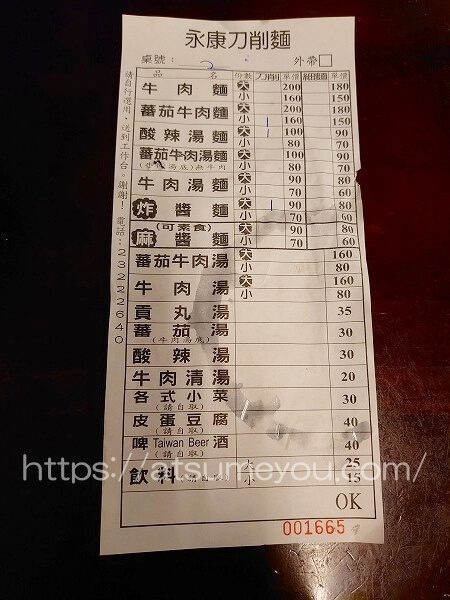 永康刀削麵
桌號： 2 外帶□
品名 份數 刀削 單價 細麵 單價
牛肉麵 大 200 180
小 160 150
蕃茄牛肉麵 大 200 180
小 160 150
酸辣湯麵 大 100 90
小 80 70
蕃茄牛肉湯麵 大 100 90
小 80 70
牛肉湯麵 大 90 80
小 70 60
炸醬麵 大 90 80
小 70 60
(可素食)
麻醬麵 大 90 80
小 70 60
蕃茄牛肉湯 大 160
小 80
牛肉湯 大 160
小 80
貢丸湯 35
蕃茄湯 30
(牛肉湯底)
酸辣湯 30
牛肉清湯 20
各式小菜 30
(請自取)
皮蛋豆腐 40
(請自取)
啤Taiwan Beer酒 40
(請自取)
飲料(請自取) 大 25
小 15
OK
001665
請自行選用，送到工作台。謝謝！ 電話：23222640
https://atsumeyou.com/